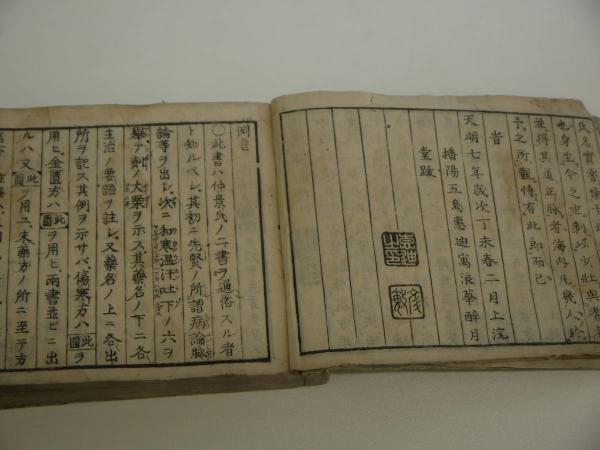 氏名實
也身生今之世刻
並得其道正脉者海内凡幾人於
予之所觀侍有此郎而已
昔
天明七年歳次丁未春二月上浣
播陽五島惠迪寓浪華醉月
堂跋
惠迪之印
凡言
〇此書ハ仲景氏ノ二書ヲ通俗スル者
ト知ルベシ其初ニ先賢ノ所謂病論脉
論等ヲ出シ次ニ和寒温汗吐下ノ六ヲ
擧テ劑ノ大槩ヲ示ス其藥名ノ下ニ各
主治ノ要語ヲ註シ又藥名ノ上ニ各出
所ヲ記ス其例ヲ示サバ傷寒方ハ此圖ヲ
用ヒ金匱方ハ此圖ヲ用ヒ兩書並ビニ出
ルハ又此圖ヲ用ユ末藥方ノ所ニ至テ方